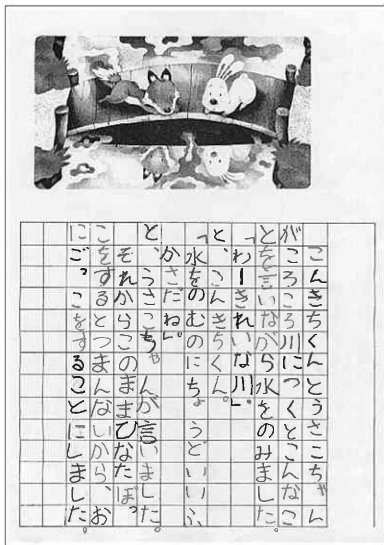 こんきちくんとうさこちゃん
がころころ川につくとこんなこ
とを言いながら水をのみました。
「わーきれいな川」。
と、こんきちくん。
「水をのむのにちょうどいいふ
かさだね」。
と、うさこちゃんが言いました。
それからこのままひなたぼっ
こをするとつまんないから、お
にごっこをすることにしました。